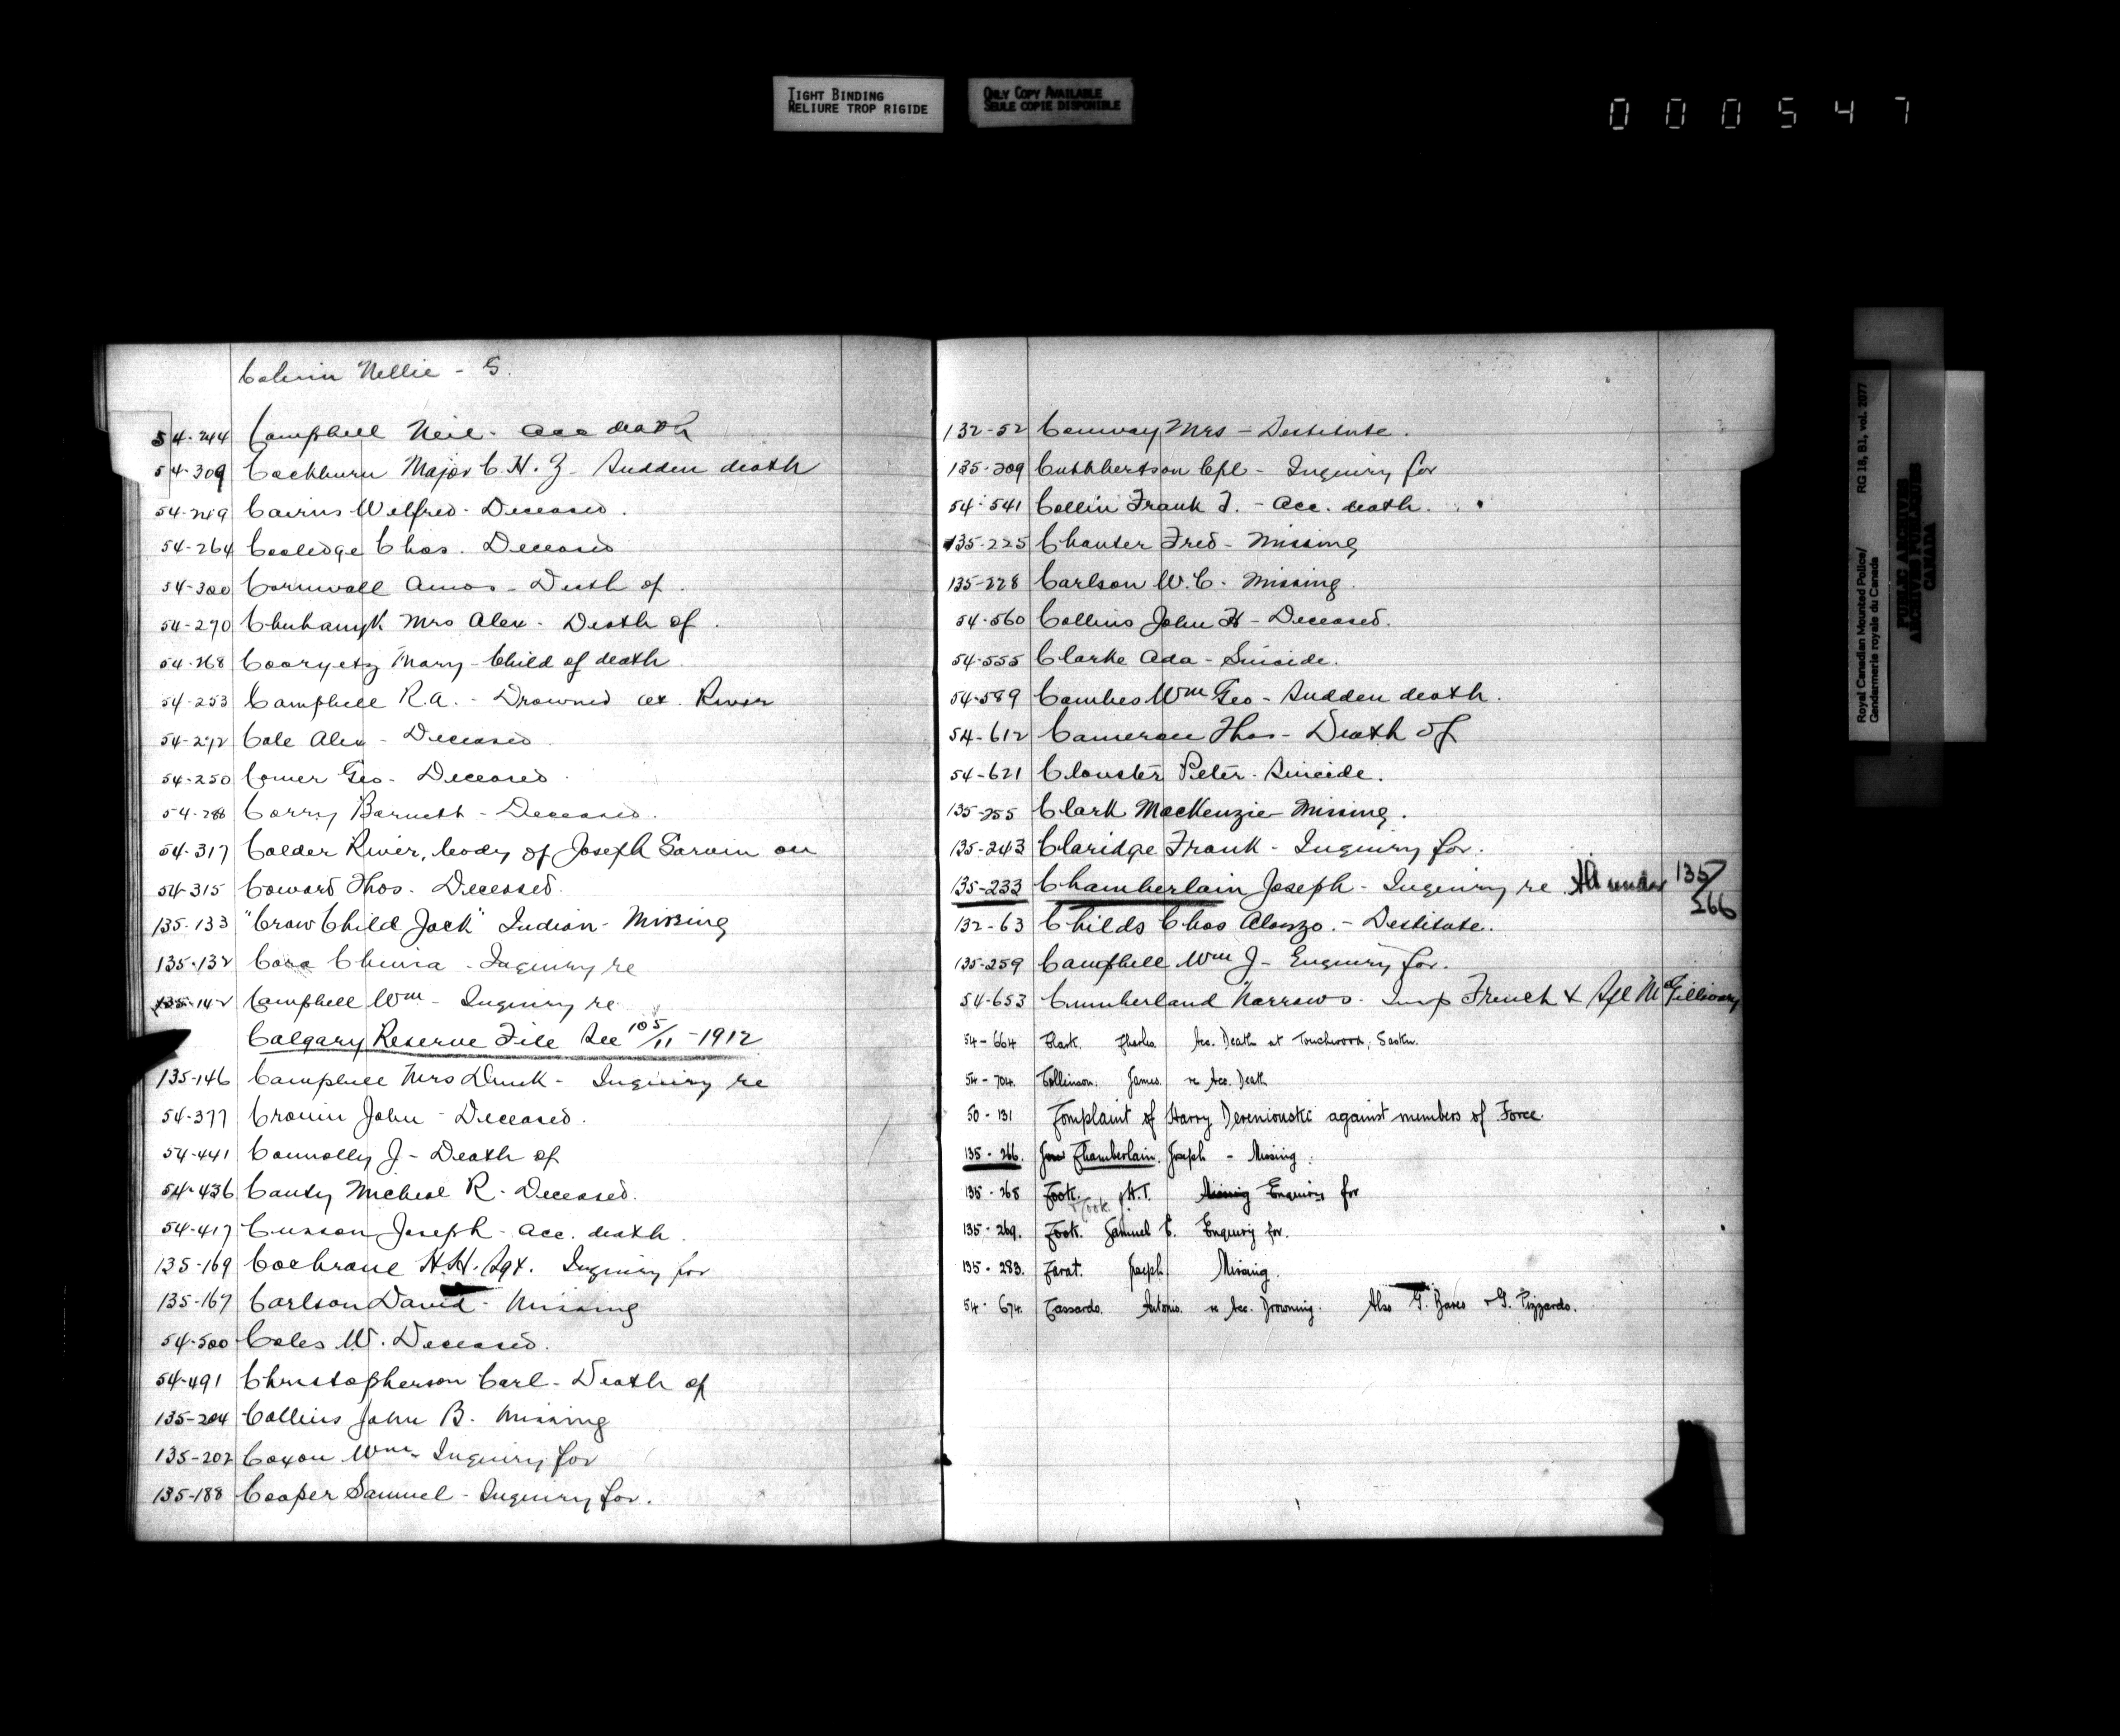 TIGHT BINDING
RELIURE TROP RIGIDE
ONLY COPY AVAILABLE
SEULE COPIE DISPONIBLE
000547
Nellie - S.
54-244 Campbell Neil - Acc death
54-309 Cochburn Major C. H. Z - Sudden death
54-249 Cairns Welfred - Deceased.
54-264 Cooledge Chas. Deceased
54-300 Cornwall Amos - Death of.
54-270 Mrs Alex - Death of.
54-268 Mary - Child of death.
54-253 Campbell R.A. - Drowned at River
54-272 Cole Alex - Deceased
54-250 Comer Geo - Deceased.
54-286 Corry Barnett - Deceased.
54-317 Calder River, body of Joseph Sarvin on
54-315 Coward Thos - Deceased.
135-133 "Crow Child Jack" Indian - Missing
135-132 - Inquiry re
135-142 Campbell Wm - Inquiry re
Calgary Reserve File See 105/11 - 1912
135-146 Campbell Mrs - Inquiry re
54-377 Cronin John - Deceased.
54-441 Connolly J - Death of
54-436 Canty Micheal R. - Deceased.
54-417 Joseph - Acc. death.
135-169 Cochrane H.H. Sgt. Inquiry for
135-167 Carlson David - Missing
54-500 Coles W. Deceased.
54-491 Christopherson Carl - Death of
135-204 Collins John B. Missing
135-202 Coxon Wm - Inquiry for
135-188 Cooper Samuel - Inquiry for.
132-52 Conway Mrs - Destitute.
135-209 Cuthbertson Cpl - Inquiry for
54-541 Collin Frank T. - Acc. death.
135-225 Chanter Fred - Missing
135-228 Carlson W. C. - Missing.
54-560 Collins John H - Deceased.
54-555 Clarke Ada - Suicide.
54-589 Combes Wm Geo - Sudden death.
54-612 Cameron Thos - Death of
54-621 Clouster Peter - Suicide.
135-255 Clark MacKenzie Missing.
135-243 Claridge Frank - Inquiry for.
135-233 Chamberlain Joseph - Inquiry re All under 135/266
132-63 Childs Chas Alonzo. - Destitute.
135-259 Campbell Wm J - Enquiry for.
54-653 Cumberland Narrows - Insp French & Sgt McGillivary
54-664 Clark. Charles. Acc. Death at Touchwood, Sask.
54-704. Collinson. James. re Acc. Death
50-131 Complaint of Harry Dereniouski against members of Force.
135-266. Chamberlain. Joseph - Missing.
135-268 Cook. H.T. Missing Enquiry for
Cook.
135-269. Cook. Samuel E. Enquiry for.
135-283. Carat. Joseph Missing.
54-674. Cassardo. Antonio. re Acc. Drowning. Also G. Bares & G. Pizzardo.
Royal Canadian Mounted Police/ RG 18, B1, vol. 2077
Gendarmerie royale du Canada
PUBLIC ARCHIVES
ARCHIVES PUBLIQUES
CANADA